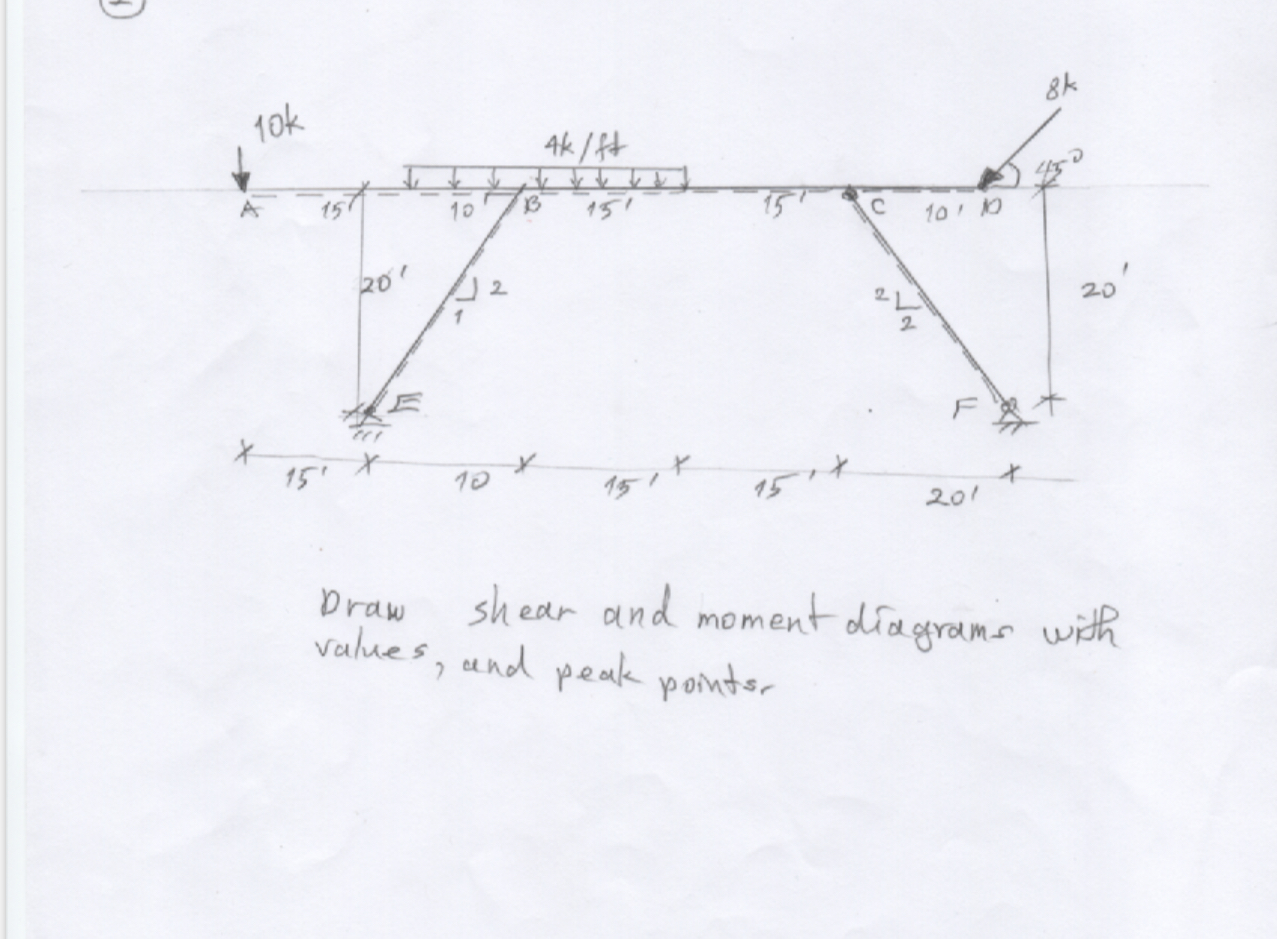 8k
10k
4k/ft
45°
A 15' 10' B 15' 15' C 10' D
20' 2 2 20'
1 2
E F
15' 10 15' 15' 20'
Draw shear and moment diagrams with
values, and peak points.